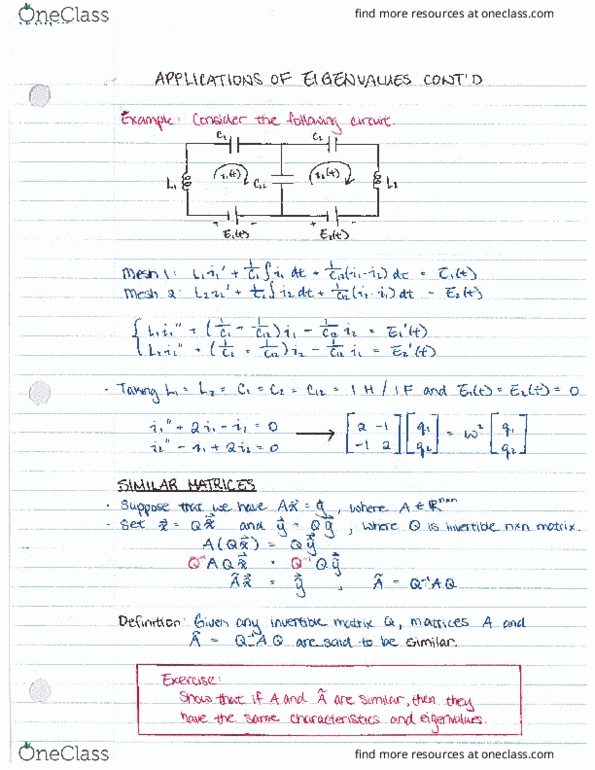 OneClass
find more resources at oneclass.com
APPLICATIONS OF EIGENVALUES CONT'D
Example: Consider the following circuit.
C₁ C₂
L₁ i₁(t) C₁₂ i₂(t) L₂
+ - - +
E₁(t) E₂(t)
Mesh 1: L₁i₁' + 1/C₁ ∫ i₁ dt + 1/C₁₂ (i₁-i₂) dt = E₁(t)
Mesh 2: L₂i₂' + ∫ i₂ dt + 1/C₁₂ (i₂-i₁) dt = E₂(t)
L₁i₁" + (1/C₁ + 1/C₁₂) i₁ - 1/C₁₂ i₂ = E₁'(t)
L₂i₂" + (1/C₁ + 1/C₁₂) i₂ - 1/C₁₂ i₁ = E₂'(t)
· Taking L₁ = L₂ = C₁ = C₂ = C₁₂ = 1 H / 1F and E₁(t) = E₂(t) = 0
i₁" + 2i₁ - i₂ = 0 → [2 -1] [q₁] = ω² [q₁]
i₂" - i₁ + 2i₂ = 0 [-1 2] [q₂] [q₂]
SIMILAR MATRICES
· Suppose that we have Ax⃗ = y⃗, where A ∈ ℝⁿˣⁿ
· Set x⃗ = Qx̃⃗ and y⃗ = Qỹ⃗, where Q is invertible nxn matrix.
A(Qx̃⃗) = Qỹ⃗
Q⁻¹AQx̃⃗ = Q⁻¹Qỹ⃗
Ãx̃⃗ = ỹ⃗, Ã = Q⁻¹AQ
Definition: Given any invertible matrix Q, matrices A and
Ã = Q⁻¹AQ are said to be similar.
Exercise:
Show that if A and Ã are similar, then they
have the same characteristics and eigenvalues.
OneClass
find more resources at oneclass.com